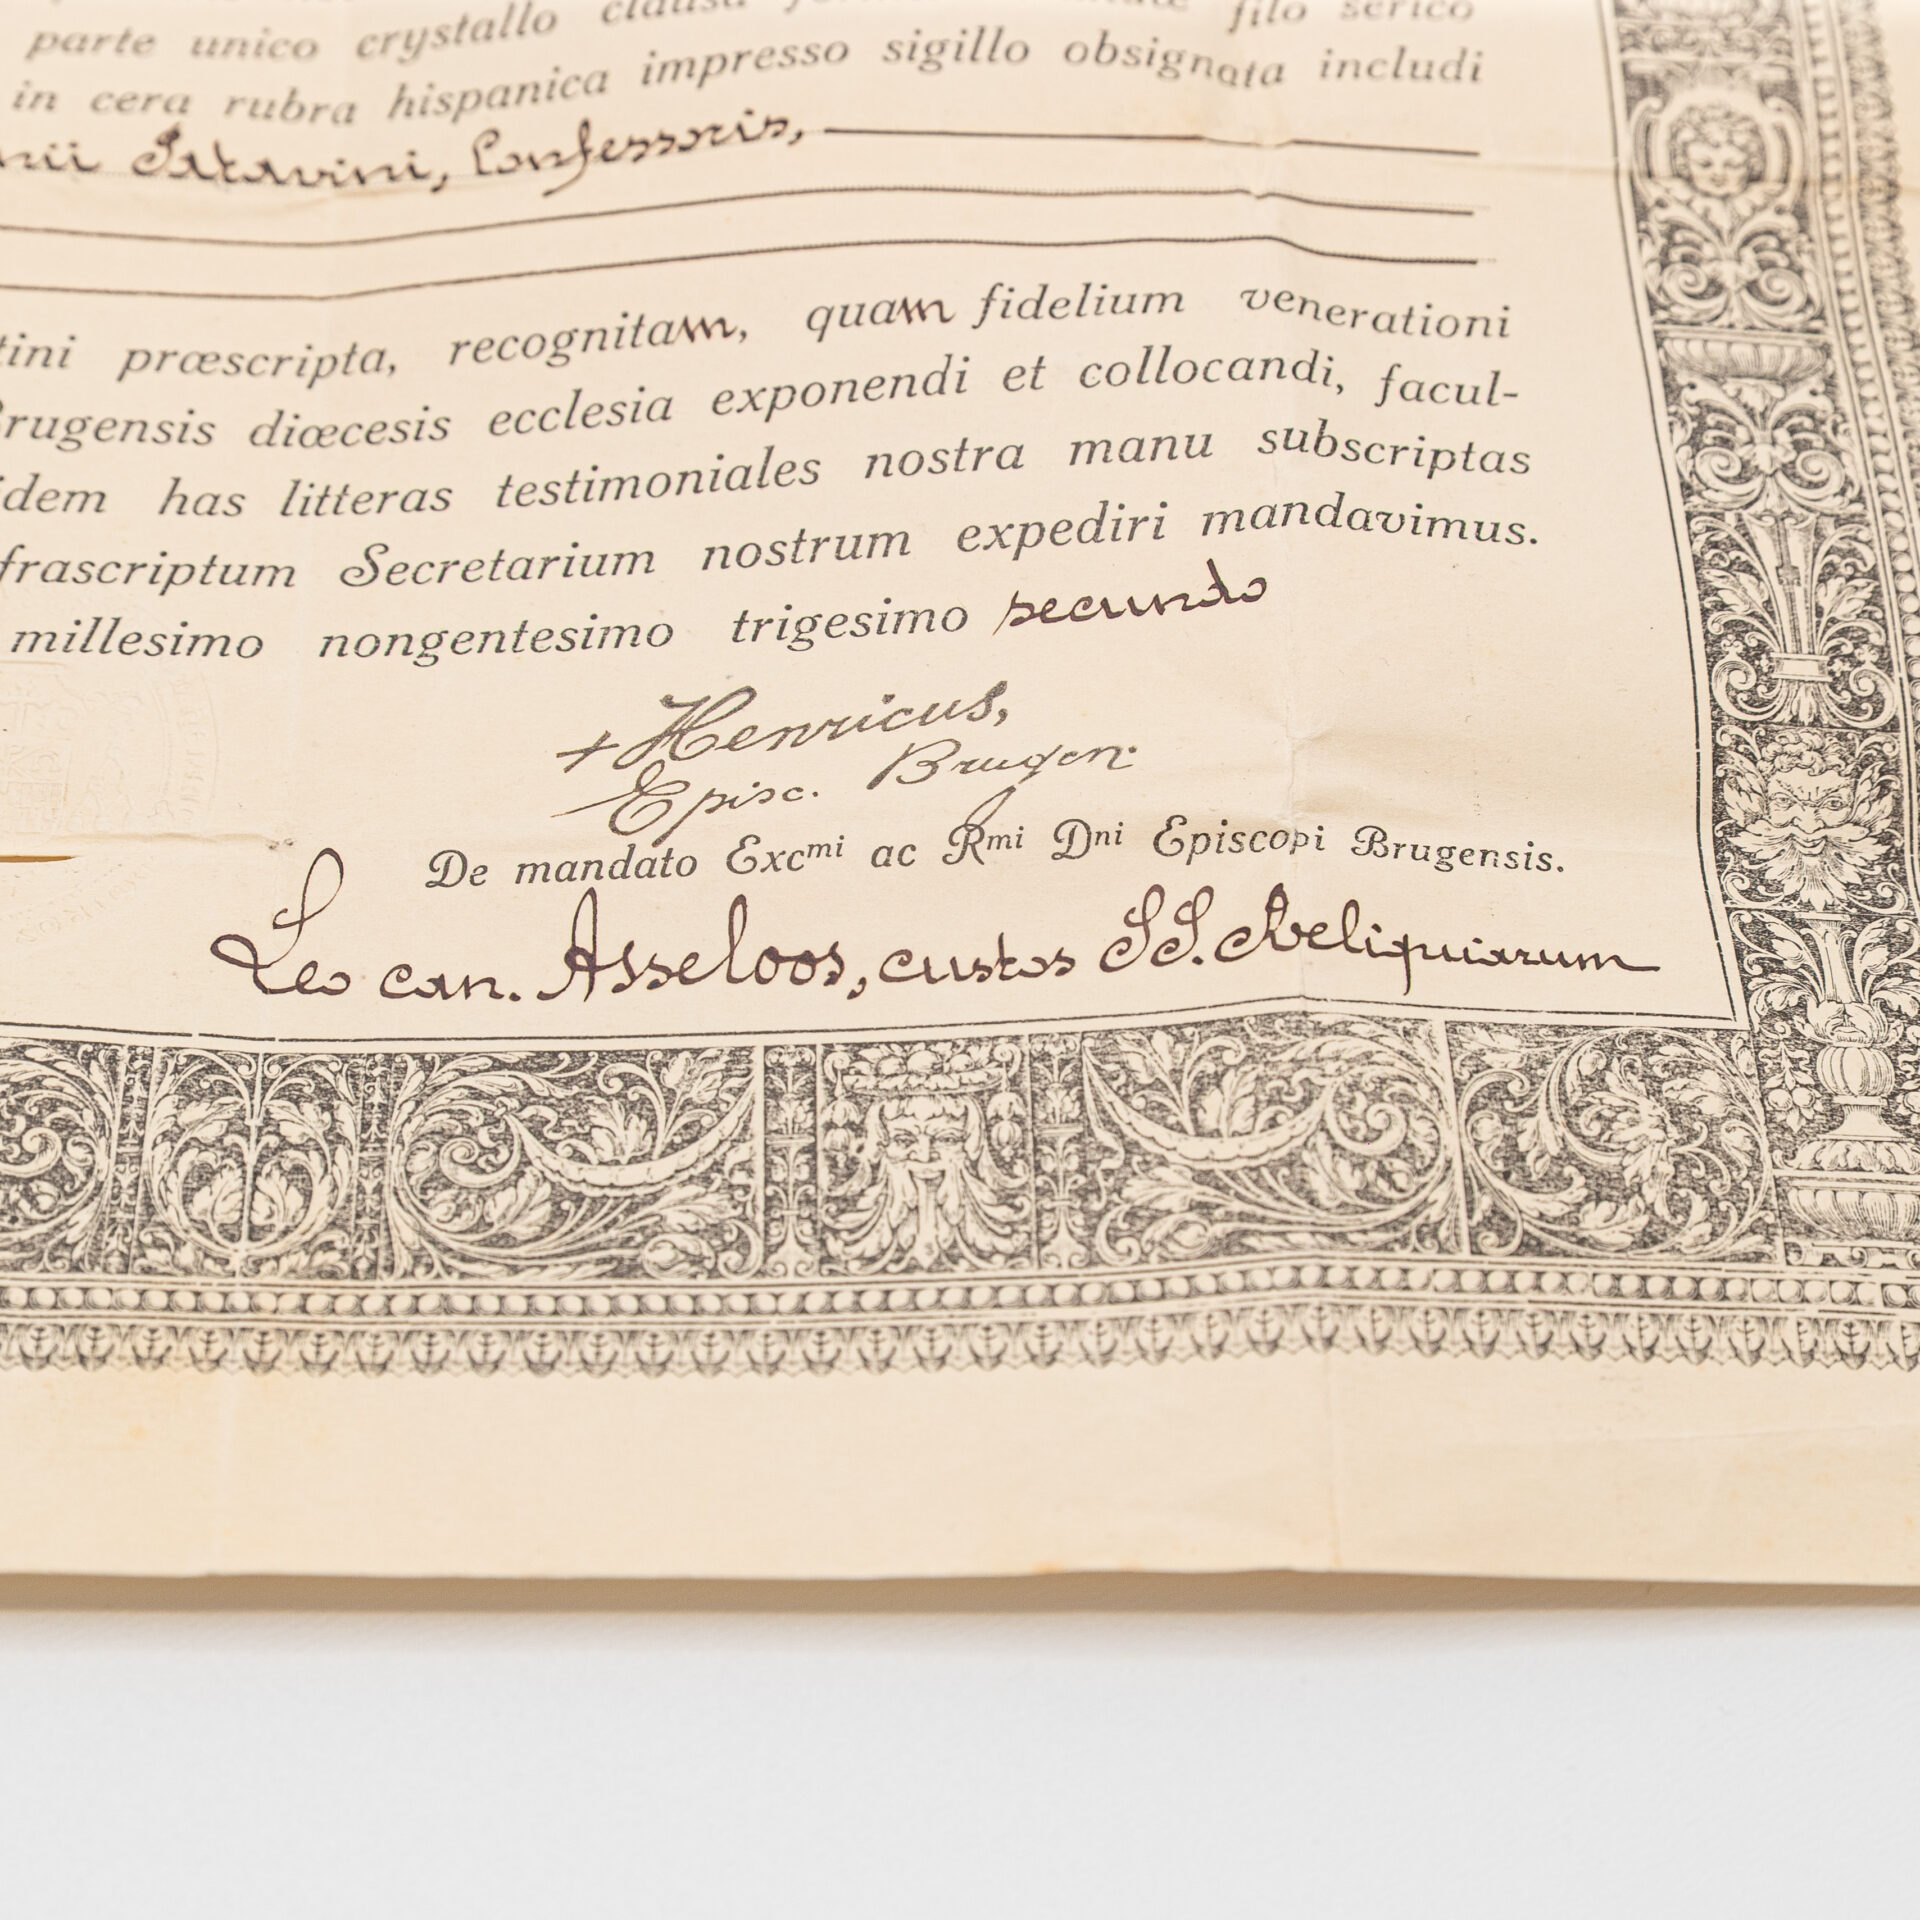 parte unico crystallo clausa filo serico
in cera rubra hispanica impresso sigillo obsignata includi
nii Patavini, Confessoris,
tini præscripta, recognitam, quam fidelium venerationi
Brugensis diœcesis ecclesia exponendi et collocandi, facul-
idem has litteras testimoniales nostra manu subscriptas
frascriptum Secretarium nostrum expediri mandavimus.
millesimo nongentesimo trigesimo secundo
+ Henricus,
Episc. Brugen.
De mandato Excmi ac Rmi Dni Episcopi Brugensis.
Leo can. Asseloos, custos SS. Reliquiarum